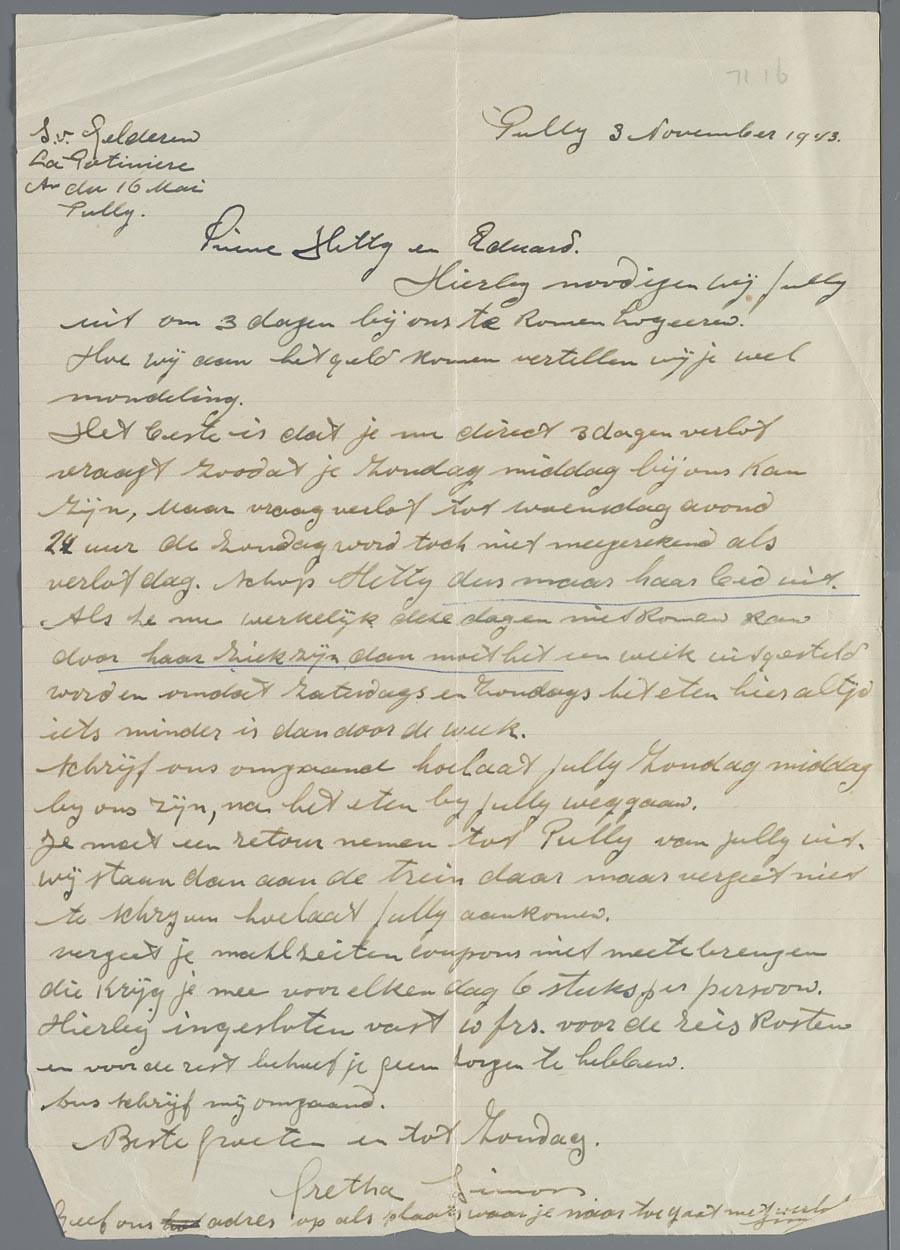 71 16
Pully 3 November 1943.
S.v. Gelderen
La Patiniere
Av du 16 Mai
Pully.
Lieve Hetty en Eduard.
Hierbij noodigen wij jully
uit om 3 dagen bij ons te komen logeeren.
Hoe wij aan het geld komen vertellen wij je wel
mondeling.
Het beste is dat je nu direct 3 dagen verlof
vraagt zoodat je Zondag middag bij ons kan
zijn, maar vraag verlof tot woensdag avond
24 uur de Zondag word toch niet meegerekend als
verlofdag. Schop Hetty dus maar haar bed uit.
Als ze nu werkelijk deze dagen niet komen kan
door haar ziek zijn dan moet het een week uitgesteld
worden omdat Zaterdags en Zondags het eten hier altijd
iets minder is dan door de week.
Schrijf ons omgaand hoelaat jully Zondag middag
by ons zijn, na het eten by jully weggaan.
Je moet een retour nemen tot Pully van jully uit.
wij staan dan aan de trein daar maar vergeet niet
te schryven hoelaat jully aankomen.
vergeet je mahlzeiten coupons niet meetebrengen
die krijg je mee voor elken dag 6 stuks per persoon.
Hierbij ingesloten vast 10 frs. voor de reis kosten
en voor de rest behoef je geen zorgen te hebben.
Dus schrijf mij omgaand.
Beste groeten en tot Zondag.
Gretha Simon
Geef ons adres op als plaats waar je naar toe gaat met verlof